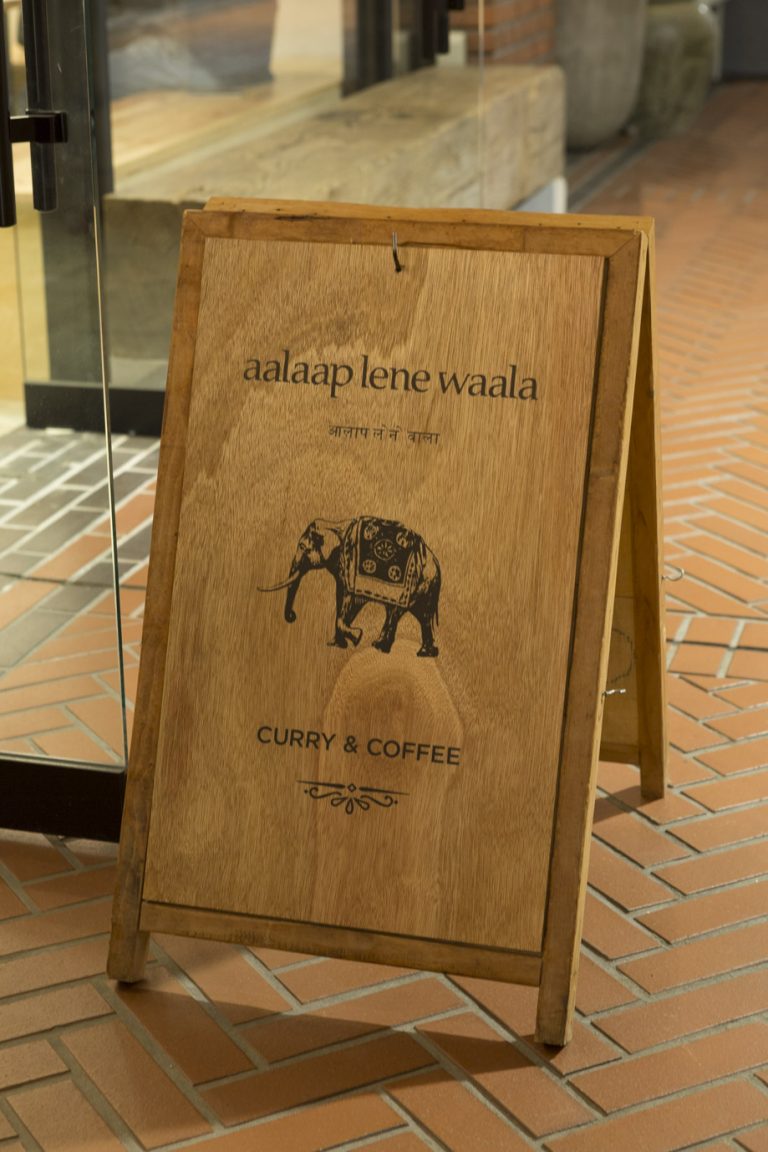 aalaap lene waala
आलाप लेने वाला
CURRY & COFFEE